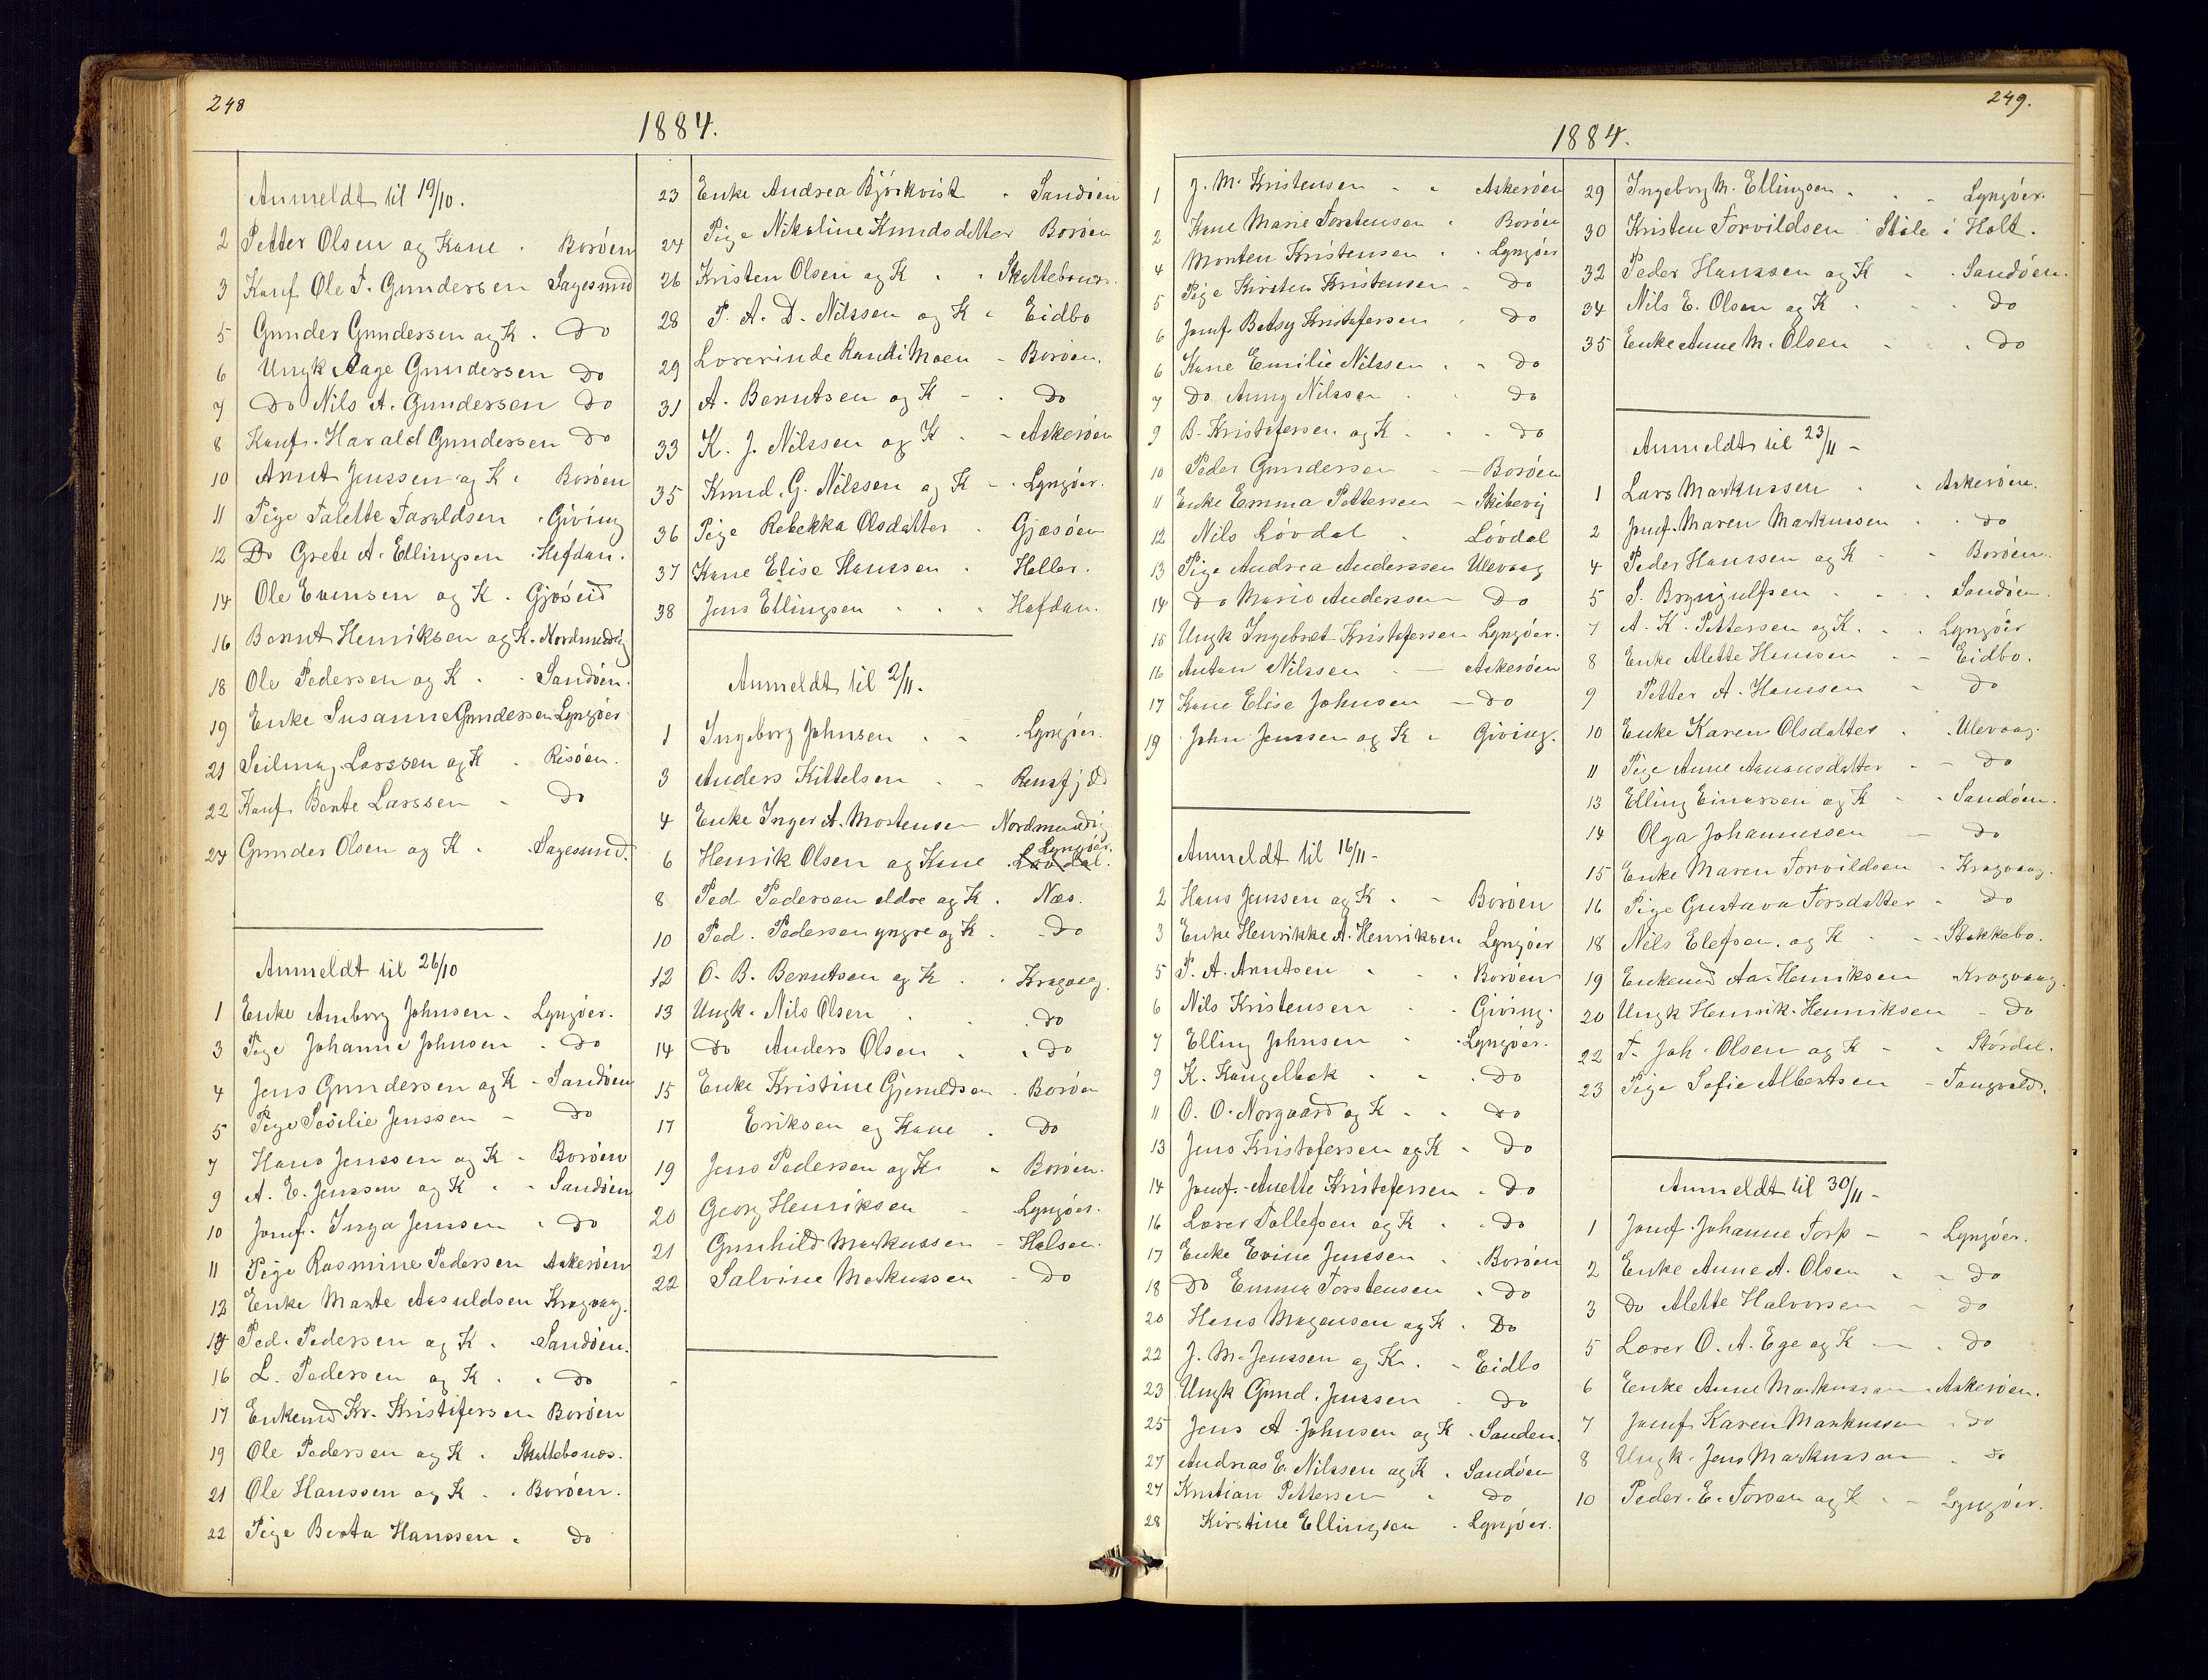 248
1884.
Anmeldt til 19/10.
2 Petter Olsen og Kone Borøen
3 Konf Ole T. Gundersen Sagesund
5 Gunder Gundersen og K. Do
6 Ungk Aage Gundersen Do
7 Do Nils A. Gundersen Do
8 Konf. Harald Gundersen Do
10 Arnt Jenssen og K. Borøen
11 Pige Talette Taraldsen Giving
12 Do Grete A. Ellingsen Hefdan.
14 Ole Evensen og K. Gjøseid
16 Bernt Henriksen og K. Nordmudvig
18 Ole Pedersen og K. Sandøen.
19 Enke Susanne Gundersen Lyngøer
21 Seilmag. Larssen og K Risøen.
22 Konf Bente Larssen Do
24 Gunder Olsen og K. Sagesund.
Anmeldt til 26/10
1 Enke Amborg Johnsen. Lyngøer.
3 Pige Johanne Johnsen Do
4 Jens Gundersen og K Sandøen
5 Pige Sesilie Jenssen Do
7 Hans Jenssen og K Borøen
9 A. E. Jenssen og K Sandøen
10 Jomf. Inga Jenssen Do
11 Pige Rasmine Pedersen Askerøen
12 Enke Marte Aasuldsen Kragvaag.
14 Ped. Pedersen og K. Sandøen.
16 L. Pedersen og K. Do
17 Enkemd Kr. Kristofersen Borøen
19 Ole Pedersen og K. Skuttebonæs.
21 Ole Hanssen og K. Borøen.
22 Pige Berta Hanssen Do
23 Enke Andrea Bjørkvist Sandøen
24 Pige Nikoline Knudsdatter Borøen
26 Kristen Olsen og K Skuttebonæs.
28 P. A. D. Nilssen og K Eidbo
29 Lærerinde Randi Moen Borøen.
31 A. Berntsen og K Do
33 K. J. Nilssen og K Askerøen
35 Knud. G. Nilssen og K Lyngøer.
36 Pige Rebekka Olsdatter Gjæsøen
37 Kone Elise Hanssen Heller.
38 Jens Ellingsen Hafdan.
Anmeldt til 2/11.
1 Ingeborg Johnsen Lyngøer.
3 Anders Kittelsen
4 Enke Inger A. Mortensen Nordmudvig
6 Henrik Olsen og Kone Løvdal. Lyngøer.
8 Ped Pedersen eldre og K. Næs.
10 Ped. Pedersen yngre og K. Do
12 O. B. Berntsen og K Kragvag.
13 Ungk. Nils Olsen Do
14 Do Anders Olsen Do
15 Enke Kristine Gjeruldsen Borøen
17 Eriksen og Kone Do
19 Jens Pedersen og K. Borøen.
20 Georg Henriksen Lyngøer.
21 Gunhild Markussen Halsen.
22 Salvine Markussen Do
249.
1884.
1 J. M. Kristensen Askerøen
2 Kone Marie Torstensen Borøen
4 Morten Kristensen Lyngøer
5 Pige Kirsten Kristensen Do
6 Jomf. Betsy Kristofersen Do
6 Kone Emilie Nilssen Do
7 Do Anny Nilssen Do
9 B. Kristofersen og K. Do
10 Peder Gundersen Borøen
11 Enke Emma Pettersen Skibevig
12 Nils Løvdal Løvdal
13 Pige Andrea Anderssen Ulevaag
14 Do Marie Anderssen Do
15 Ungk Ingebret Kristofersen Lyngøer.
16 Anton Nilssen Askerøen
17 Kone Elise Johnsen Do
19 John Jenssen og K Giving.
Anmeldt til 16/11
2 Hans Jenssen og K. Borøen
3 Enke Henrikke A. Henriksen Lyngøer
5 P. A. Arntsen Borøen
6 Nils Kristensen Giving.
7 Elling Johnsen Lyngøer.
9 K. Kongelbek Do
11 O. O. Norgaard og K Do
13 Jens Kristofersen og K Do
14 Jomf. Anette Kristofersen Do
16 Lærer Tollefsen og K Do
17 Enke Evine Jenssen Borøen
18 Do Emma Torstensen Do
20 Hans Mogensen og K. Do
22 J. M. Jenssen og K. Eidbo
23 Ungk Gund. Jenssen Do
25 Jens A. Johnsen og K. Sanden.
27 Andreas E. Nilssen og K Sandøen
27 Kristian Pettersen Do
28 Kirstine Ellingsen Lyngøer.
29 Ingeborg M. Ellingsen Lyngøer.
30 Kristen Torvildsen Støle i Holt.
32 Peder Hanssen og K Sandøen.
34 Nils E. Olsen og K Do
35 Enke Anne M. Olsen Do
Anmeldt til 23/11
1 Lars Markussen Askerøen.
2 Jomf. Maren Markussen Do
4 Peder Hanssen og K Borøen.
5 S. Bryngulfsen Sandøen.
7 A. K. Pettersen og K. Lyngøer
8 Enke Alette Hanssen Eidbo.
9 Petter A. Hanssen Do
10 Enke Karen Olsdatter Ulevaag
11 Pige Anne Aanonsdatter Do
13 Elling Einarsen og K Sandøen.
14 Olga Johannessen Do
15 Enke Maren Torvildsen Kragvaag.
16 Pige Gustava Torsdatter Do
18 Nils Elefsen og K Stokkebo.
19 Enkemd Aa. Henriksen Kragvaag.
20 Ungk Henrik Henriksen Do
22 T. Joh. Olsen og K Størdal.
23 Pige Sofie Albertsen Tangvald.
Anmeldt til 30/11
1 Jomf. Johanne Torp Lyngøer.
2 Enke Anne A. Olsen Do
3 Do Alette Halvorsen Do
5 Lærer O. A. Ege og K Do
6 Enke Anne Markussen Askerøen.
7 Jomf. Karen Markussen Do
8 Ungk. Jens Markussen Do
10 Peder. E. Torsen og K Lyngøer.